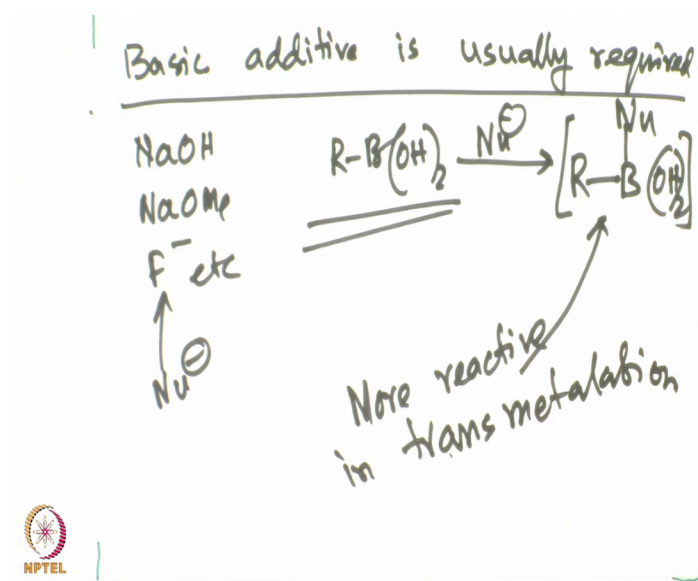 Basic additive is usually required
NaOH
NaOMe
F⁻ etc
Nu⊖
R-B(OH)₂ Nu⊖ [R-B(OH)₂]
Nu
More reactive
in transmetalation
NPTEL